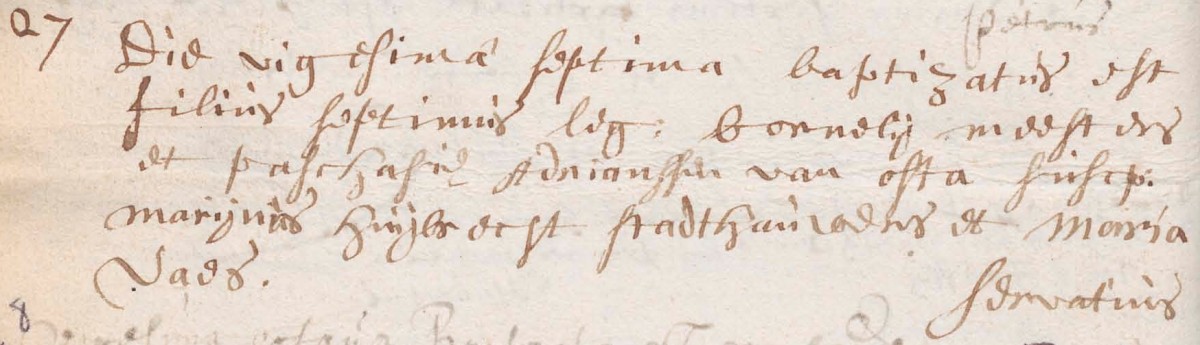 petrus
27 Die vigesima septima baptizatus est
filius septimus leg: Cornelij meesters
et paschasie Adrianssen van osta suscep:
marijnus huijbrecht stadthauweders et Maria
Vaes.
servatius
8